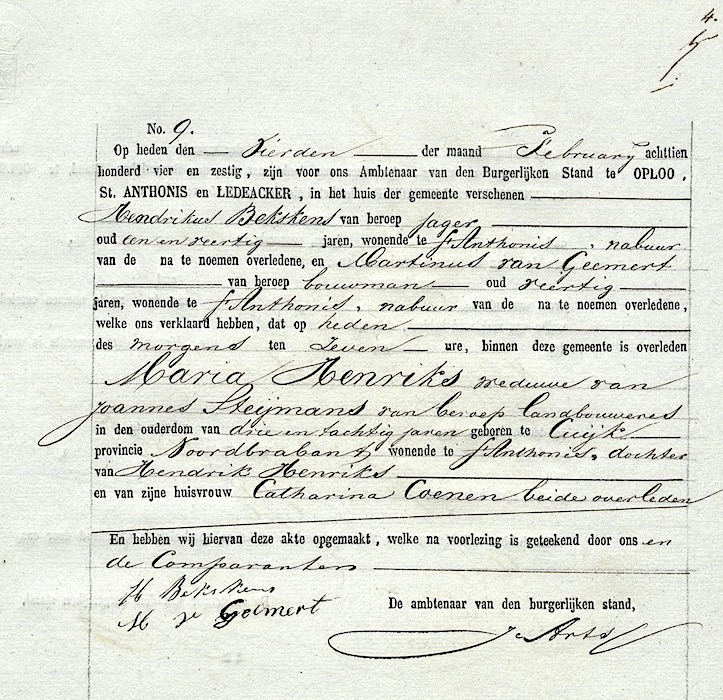 4.
No. 9.
Op heden den Vierden der maand February achttien
honderd vier en zestig, zijn voor ons Ambtenaar van den Burgerlijken Stand te OPLOO,
St. ANTHONIS en LEDEACKER, in het huis der gemeente verschenen
Hendrikus Bekskens van beroep jager
oud een en veertig jaren, wonende te St Anthonis, nabuur
van de na te noemen overledene, en Martinus van Geemert
van beroep bouwman oud veertig
jaren, wonende te St Anthonis, nabuur van de na te noemen overledene,
welke ons verklaard hebben, dat op heden
des morgens ten Zeven ure, binnen deze gemeente is overleden
Maria Henriks weduwe van
Joannes Steijmans van beroep landbouweres
in den ouderdom van drie en tachtig jaren geboren te Cuijk
provincie Noordbrabant, wonende te St Anthonis, dochter
van Hendrik Henriks
en van zijne huisvrouw Catharina Coenen beide overleden
En hebben wij hiervan deze akte opgemaakt, welke na voorlezing is geteekend door ons en
de Comparanten
H Bekskens
M v Geemert
De ambtenaar van den burgerlijken stand,
J. Arts